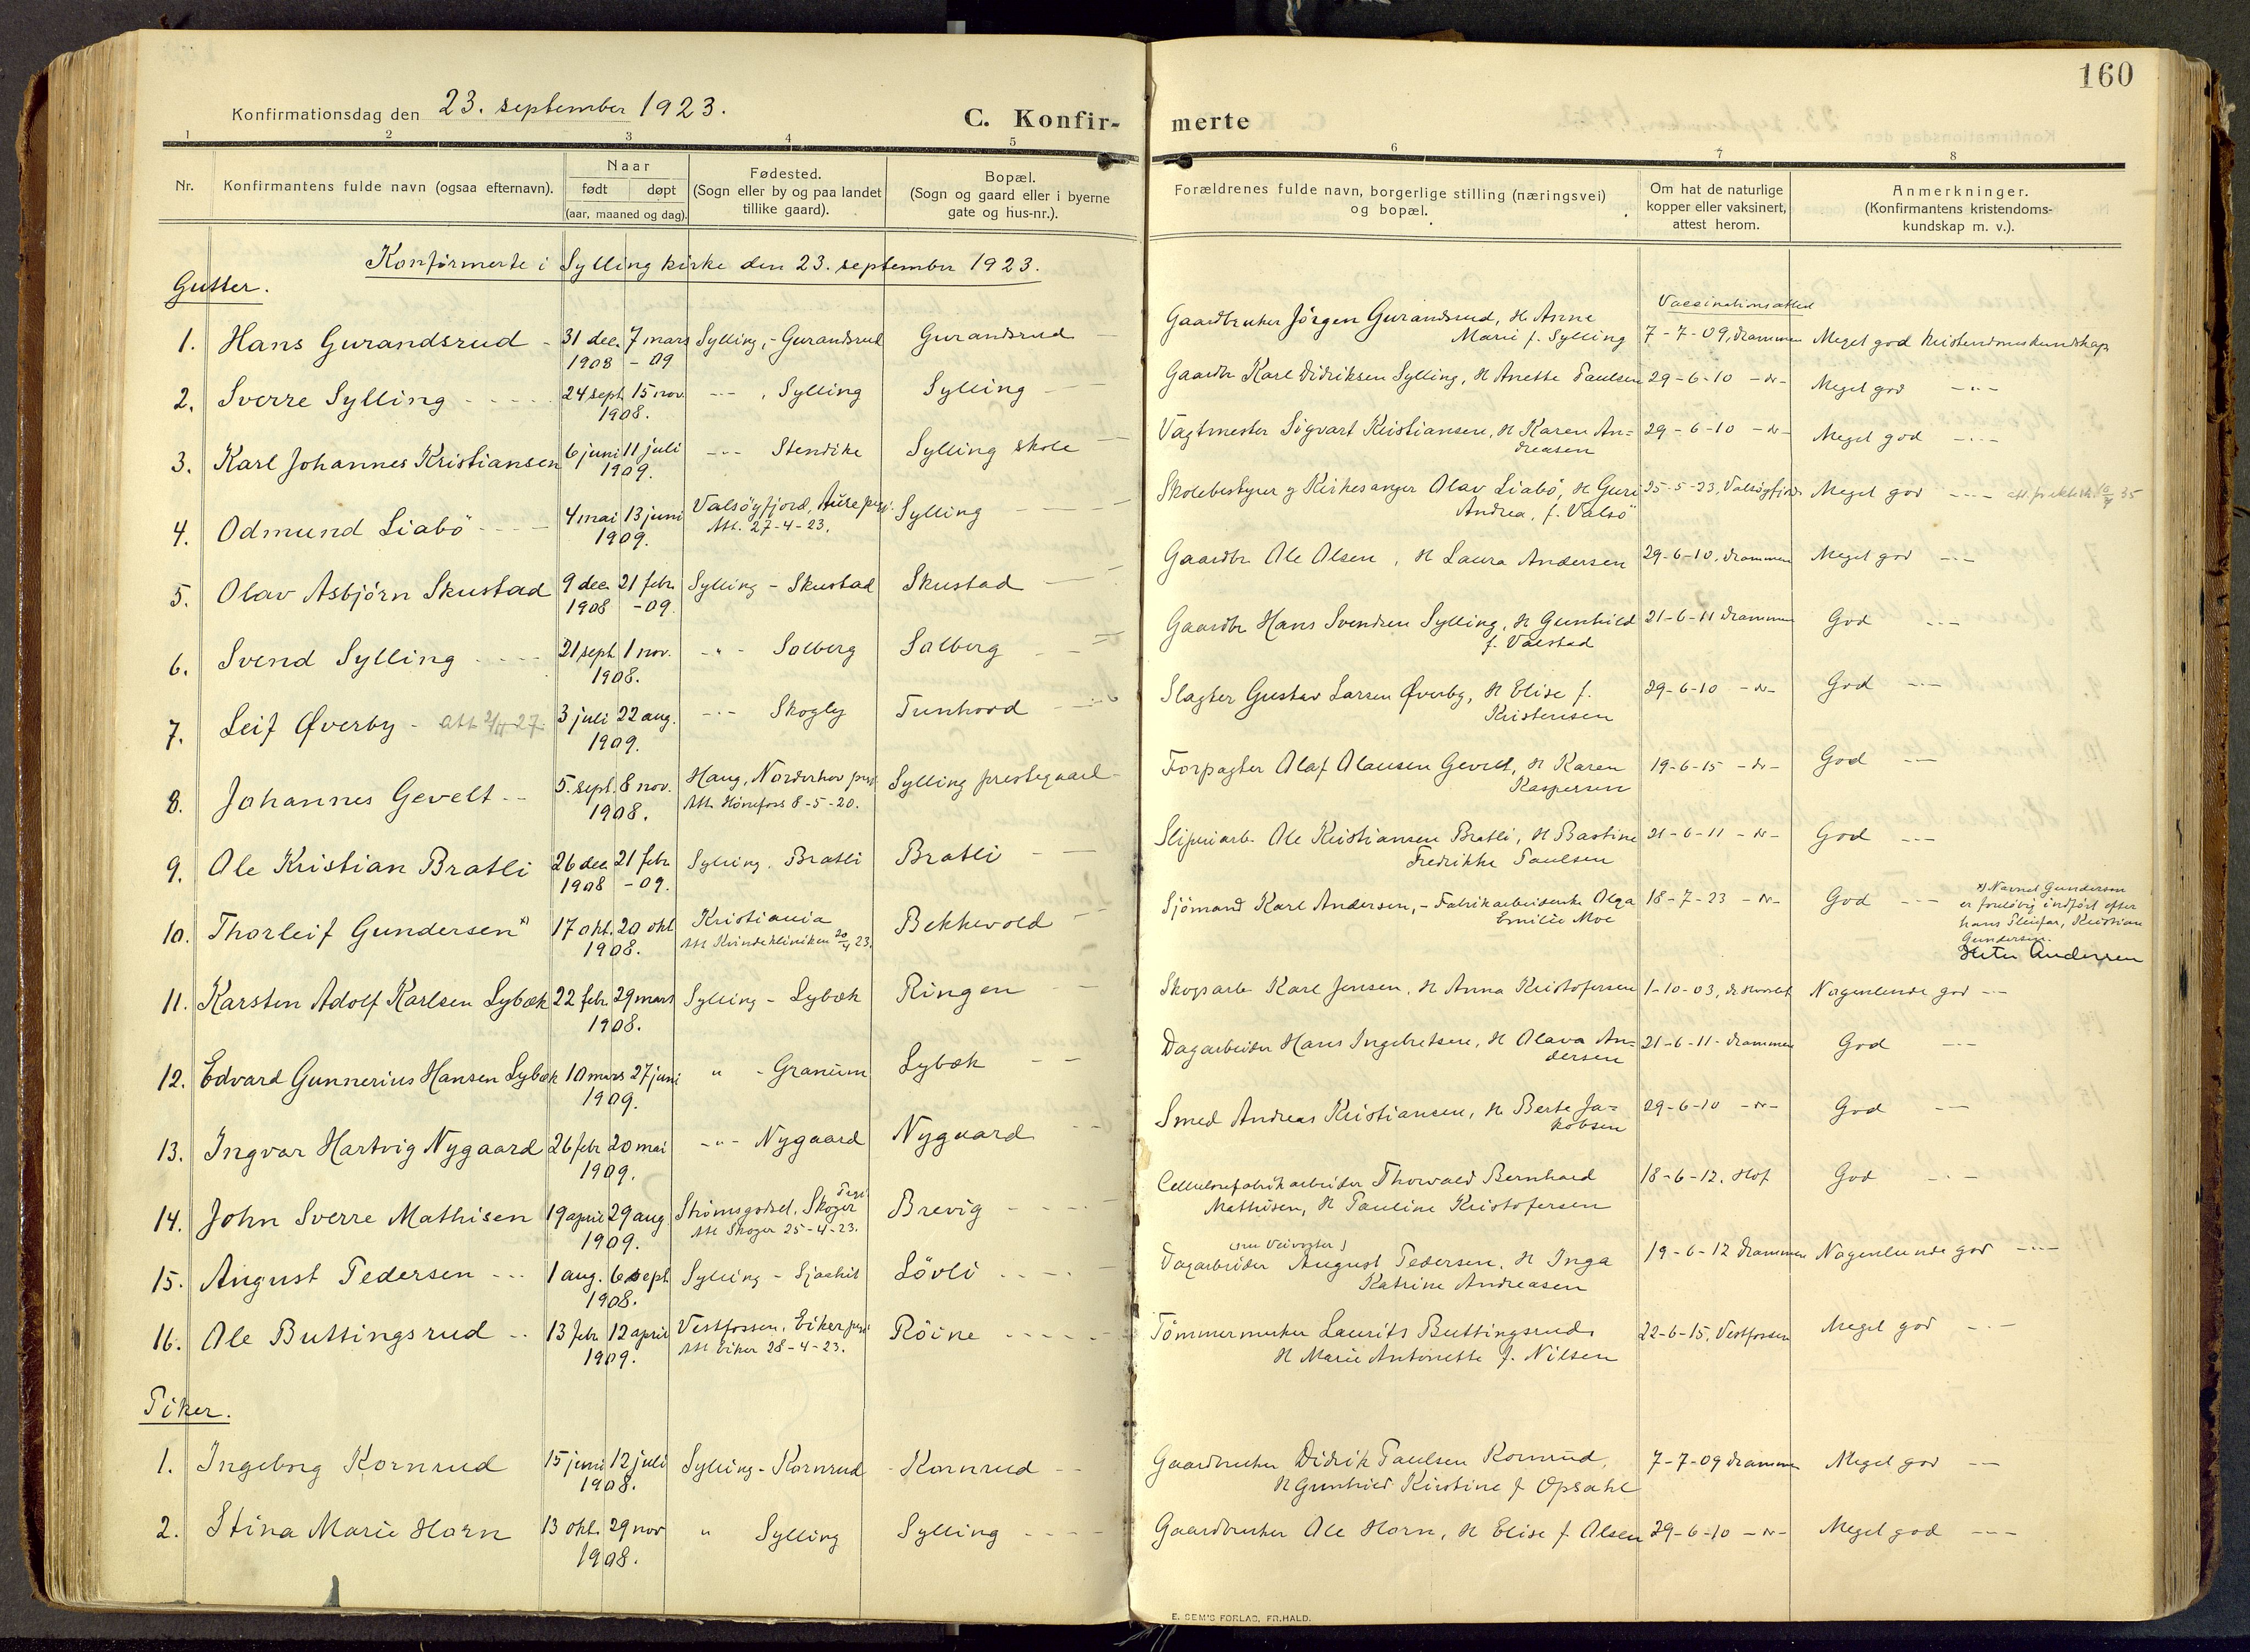 160
Konfirmationsdag den 23. september 1923.
C. Konfir-
merte
1 2 3 4 5 6 7 8
Nr.
Konfirmantens fulde navn (ogsaa efternavn).
Naar
født døpt
(aar, maaned og dag).
Fødested.
(Sogn eller by og paa landet
tillike gaard).
Bopæl.
(Sogn og gaard eller i byerne
gate og hus-nr.).
Forældrenes fulde navn, borgerlige stilling (næringsvei)
og bopæl.
Om hat de naturlige
kopper eller vaksinert,
attest herom.
Anmerkninger.
(Konfirmantens kristendoms-
kundskap m. v.).
Konfirmerte i Sylling kirke den 23. september 1923.
Gutter.
Vaccinationsattest
1. Hans Gurandsrud - 31 dec. 7 mars Sylling, - Gurandsrud Gurandsrud
1908 - 09
Gaardbruker Jörgen Gurandsrud, H Anne
Marie f. Sylling 7-7-09, Drammen Meget god Kristendomskundskap
2. Sverre Sylling 24 sept. 15 nov. --- , Sylling Sylling
1908.
Gaardbr Karl Didriksen Sylling, H Anette Paulsen 29-6-10 -"- Meget god -"-
3. Karl Johannes Kristiansen 6 juni 11 juli --- Stendike Sylling skole
1909.
Vagtmester Sigvart Kristiansen, H Karen An=
dreasen 29-6-10 -"- Meget god -"-
4. Odmund Liabö 4 mai 13 juni Valsöyfjord, Aure pgj. Sylling
1909. Att. 27-4-23.
Skolebestyrer g Kirkesanger Olav Liabö, H Guri
Andrea, f. Valsö 25-5-23, Valsöyfjord Meget god ---
5. Olav Asbjörn Skustad 9 dec. 21 febr. Sylling - Skustad Skustad
1908 -09.
Gaardbr Ole Olsen, H Laura Andersen 29-6-10, Drammen Meget god ---
6. Svend Sylling 21 sept. 1 nov. -"- Solberg Solberg
1908.
Gaardbr Hans Svendsen Sylling, H Gunhild
f. Valstad 21-6-11 Drammen God ---
7. Leif Øverby - att 27. 3 juli 22 aug. --- Skogly Tunhovd
1909.
Slagter Gustav Larsen Øverby, H Elise f.
Kristensen 29-6-10 -"- God ---
8. Johannes Gevelt -- 5. sept. 8 nov. Haug, Norderhov pgj. Sylling prestegaard
1908. Att. Hönefoss 8-5-20.
Forpagter Olaf Olausen Gevelt, H Karen
Kaspersen 19-6-15 -"- God ---
9. Ole Kristian Bratli 26 dec. 21 febr. Sylling. Bratli Bratli
1908 - 09.
Sliperiarb. Ole Kristiansen Bratli, H Bastine
Fredrikke Paulsen 21-6-11 -"- God ---
10. Thorleif Gundersen x) 17 okt. 20 okt Kristiania Bekkevold
1908. Att Kvindekliniken 20/4 23.
Sjömand Karl Andersen, - Fabrikarbeiderske Olga
Emilie Moe 18-7-23 -"- God ---
x) Navnet Gundersen
er foreløbig indfört efter
hans Pleiefar, Kristian
Gundersen.
Heter Andersen
11. Karsten Adolf Karlsen Lybæk 22 febr. 29 mars Sylling - Lybæk Ringen
1908.
Skogsarb. Karl Jensen, H Anna Kristofersen 1-10-03, Nogenlunde god ---
12. Edvard Gunnerius Hansen Lybæk 10 mars 27 juni " - Granum Lybæk
1909.
Dagarbeider Hans Ingebretsen, H Olava An-
dersen 21-6-11 - Drammen God ---
13. Ingvar Hartvig Nygaard 26 febr 20 mai -"- Nygaard Nygaard
1909.
Smed Andreas Kristiansen, H Berte Ja-
kobsen 29-6-10 -"- God ---
14. John Sverre Mathisen 19 april 29 aug. Strömsgodset, Skoger Pgj. Brevig
1909. Att Skoger 25-4-23.
Cellulosefabrikarbeider Thorvald Bernhard
Mathisen, H Pauline Kristofersen 18-6-12. Hof God ---
15. August Pedersen --- 1 aug. 6 sept Sylling - Lövli
1908.
(nu Veivokter)
Dagarbeider August Pedersen, H Inga
Katrine Andreasen 19-6-12 Drammen Nogenlunde god ---
16. Ole Buttingsrud -- 13 febr. 12 april Vestfossen, Eiker pgj. Röine
1909. Att Eiker 28-4-23.
Tömmermerker Laurits Buttingsrud,
H Marie Antonette f. Nilsen 22-6-15, Vestfossen Meget god ---
Piker.
1. Ingeborg Kornrud 15 juni 12 juli Sylling - Kornrud Kornrud
1908.
Gaardbruker Didrik Paulsen Kornrud,
H Gunhild Kirstine f Opsahl 7-7-09 Drammen Meget god ---
2. Stina Marie Horn 13 okt. 29 nov " Sylling Sylling
1908.
Gaardbruker Ole Horn, H Elise f Olsen 29-6-10 -"- Meget god ---
E. SEM'S FORLAG, FR.HALD.